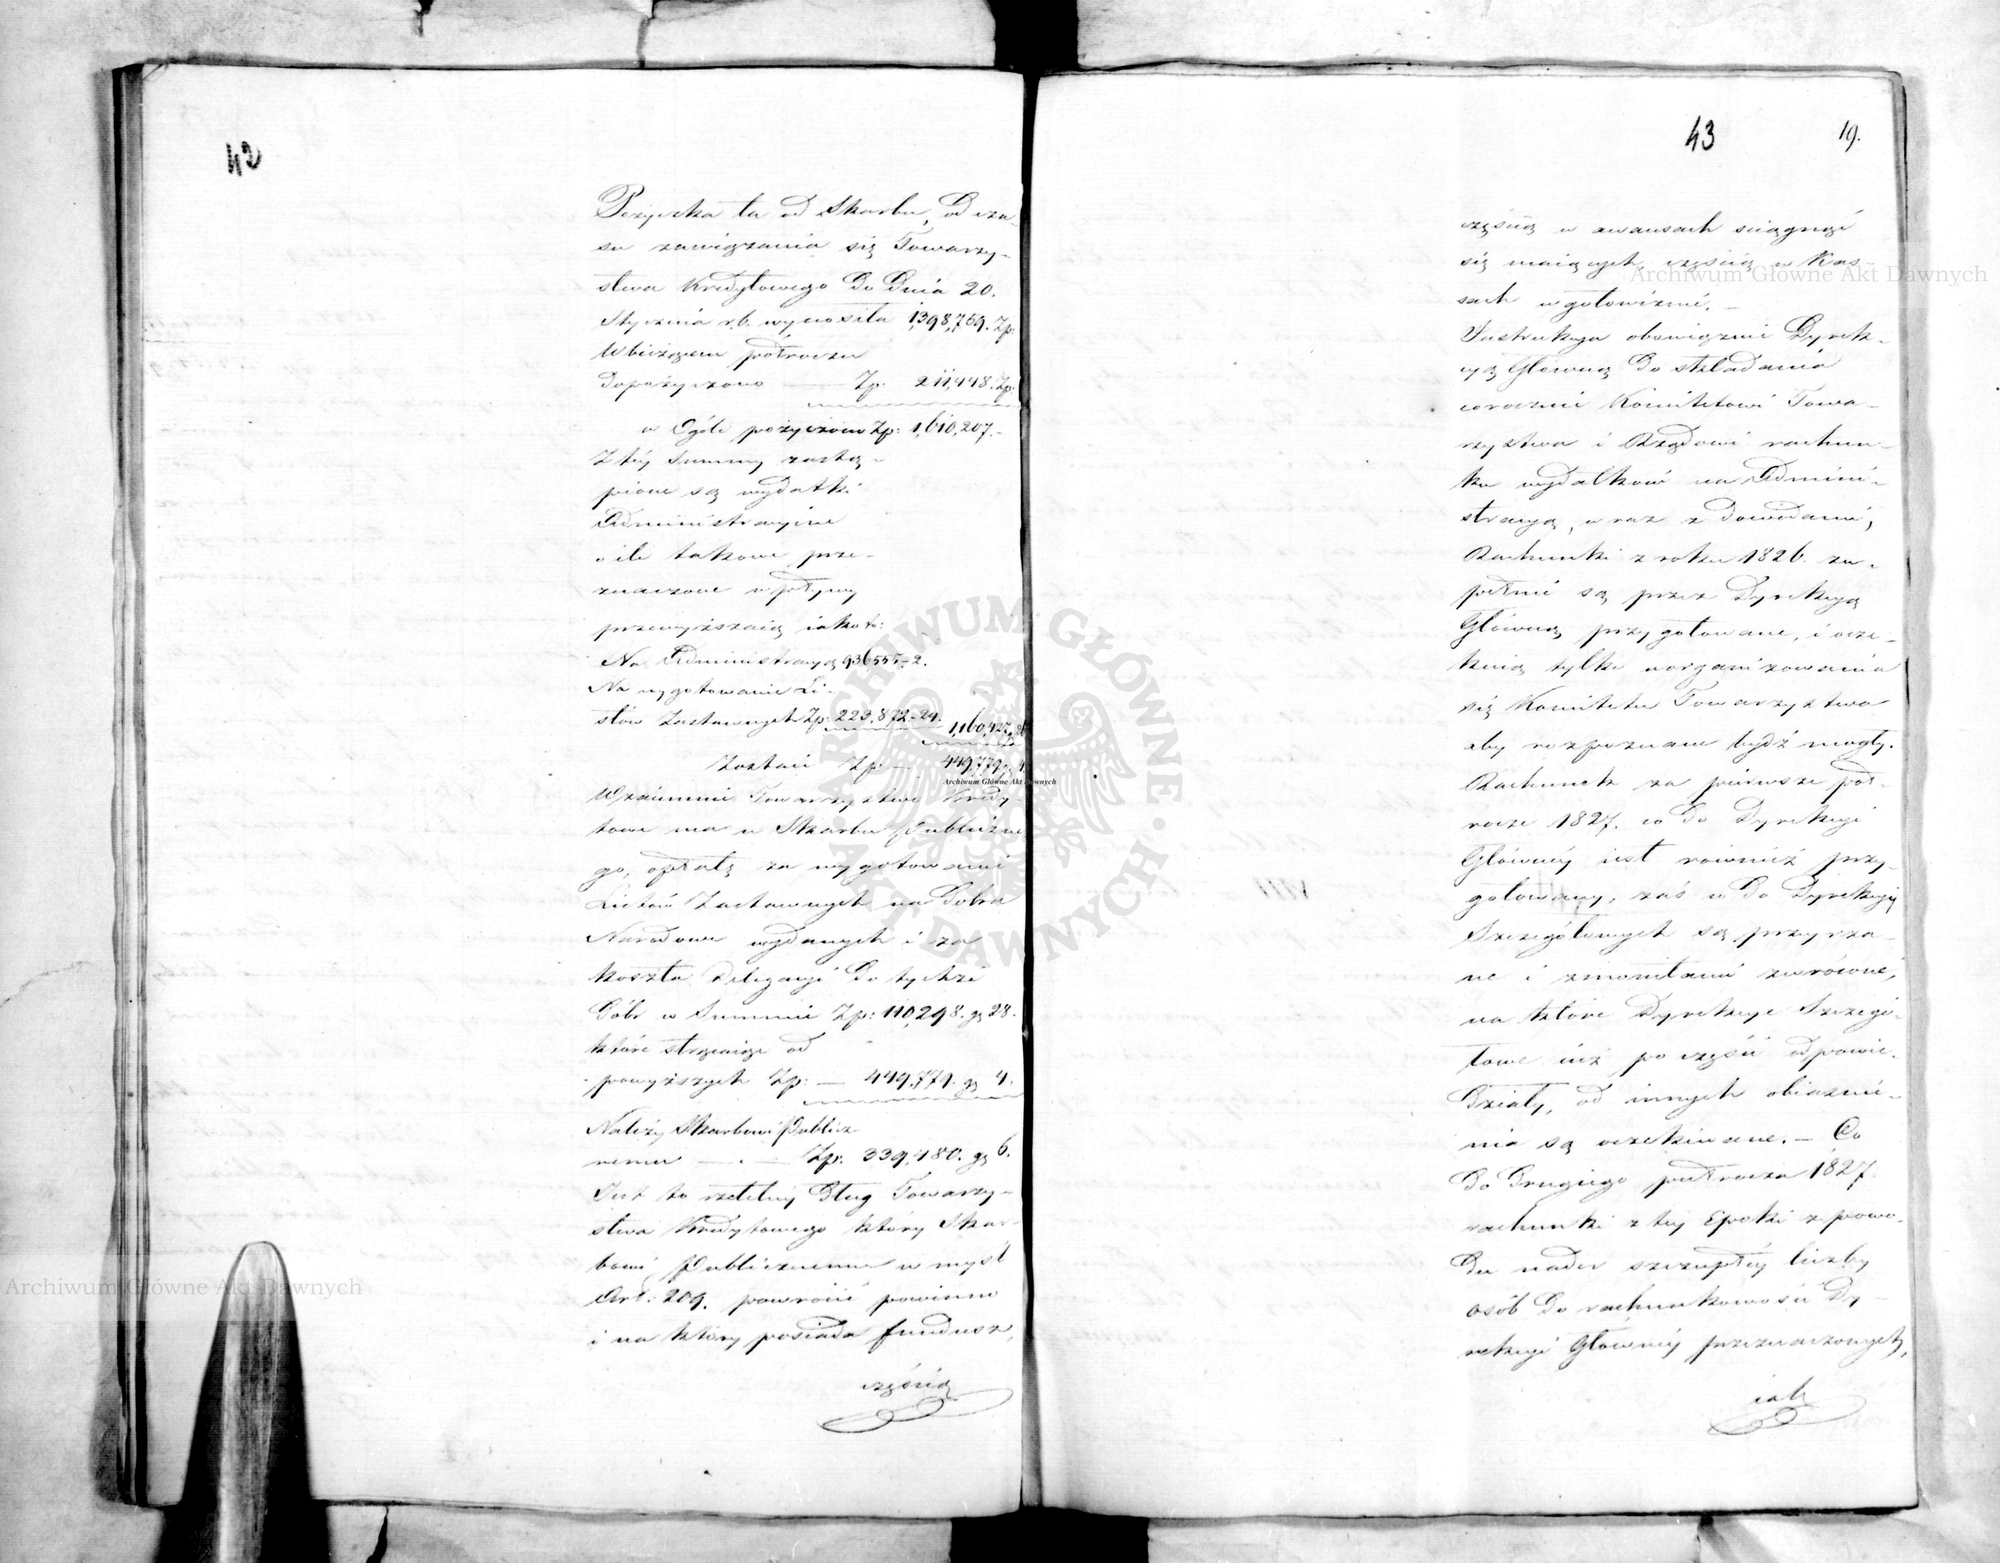 42
Pożyczka ta od Skarbu, od cza-
su zawiązania się Towarzy-
stwa Kredytowego do Dnia 20.
Stycznia r.b. wynosiła 1,398,759. Zp.
W bieżącem półroczu
dopożyczono — Zp. 211,448. Zp.
w Ogóle pożyczono Zp: 1,610,207.-
Z téj Summy zastą-
pione są wydatki
Administracyine
o ile takowe prze-
znaczone wpływy
przewyższaią iako to:
Na Administracyą 936555-2.
Na wygotowanie Li-
stów Zastawnych Zp: 223,872-24. 1,160,427, 26
Zostaie Zp — 449,779 g 4
Wzaiemnie Towarzystwo Kredy-
towe ma u Skarbu Publiczne
go, opłatę za wygotowanie
Listów Zastawnych na Dobra
Narodowe wydanych i za
koszta Delegacyi do tychże
Dóbr w Summie Zp: 110,298. g 28.
które strąciwszy od
powyższych Zp: — 449,779. g 4.
Należy Skarbowi Publicz
nemu — . — Zp: 339,480. g 6.
Jest to rzetelny Dług Towarzy-
stwa Kredytowego który Skar-
bowi Publicznemu w myśl
Art: 209. powrócić powinno
i na który posiada fundusz,
częścią
43 19.
częścią w awansach sciągnąć
się maiących częścią w Kas-
sach w gotowiźnie. —
Instrukcya obowiązuie Dyrek-
cyą Główną do składania
corocznie Komitetowi Towa-
rzystwa i Rządowi rachun-
ku wydatków na Admini-
stracyą, wraz z dowodami,
Rachunki z roku 1826. zu-
pełnie są przez Dyrekcyą
Główną przygotowane, i ocze-
kuią tylko uorganizowania
się Komitetu Towarzystwa
aby rozpoznane bydź mogły.
Rachunek za pierwsze pół-
rocze 1827. co do Dyrekcyi
Głównéy iest również przy-
gotowany, zaś co do Dyrekcyi
Szczegółowych są przeyrza-
ne i z monitami zwrócone,
na które Dyrekcye Szczegó-
łowe iuż po części odpowie-
działy, od innych obiaśnie-
nia są oczekiwane. — Co
do drugiego półrocza 1827.
rachunki z téj Epoki z powo-
du nader szczupłéy liczby
osób do rachunkowości Dy-
rekcyi Głównéy przeznaczonych,
iak
Archiwum Główne Akt Dawnych
Archiwum Główne Akt Dawnych
Archiwum Główne Akt Dawnych
ARCHIWUM GŁÓWNE AKT DAWNYCH